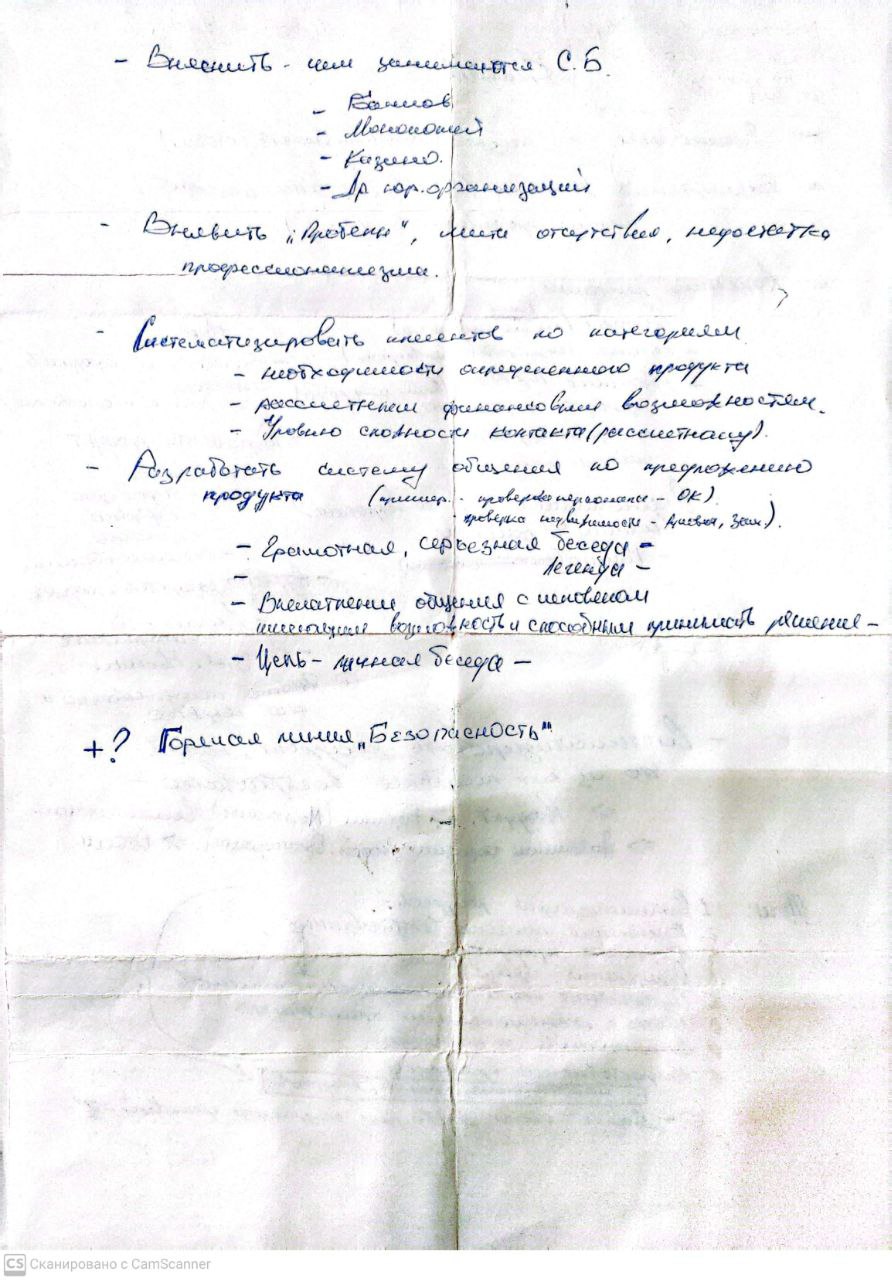 - Выяснить - чем занимаются С.Б.
- Банков
- Монополий
- Казино.
- Др юр. организаций
- Выявить „Пробелы", места отсутствия, недостатка
профессионализма.
- Систематизировать клиентов по категориям
- необходимости определенного продукта
- рассчетным финансовым возможностям.
- Уровню сложности контакта (рассчетному).
- Разработать систему общения по предложению
продукта (пример. - проверка персонала - ОК).
- проверка недвижимости - , Зем).
- Грамотная, серьезная беседа -
Легенда -
-
- общения с человеком
имеющим возможность и способным принимать решение -
- Цель - личная беседа -
+? Горячая линия „Безопасность"
CS Сканировано с CamScanner